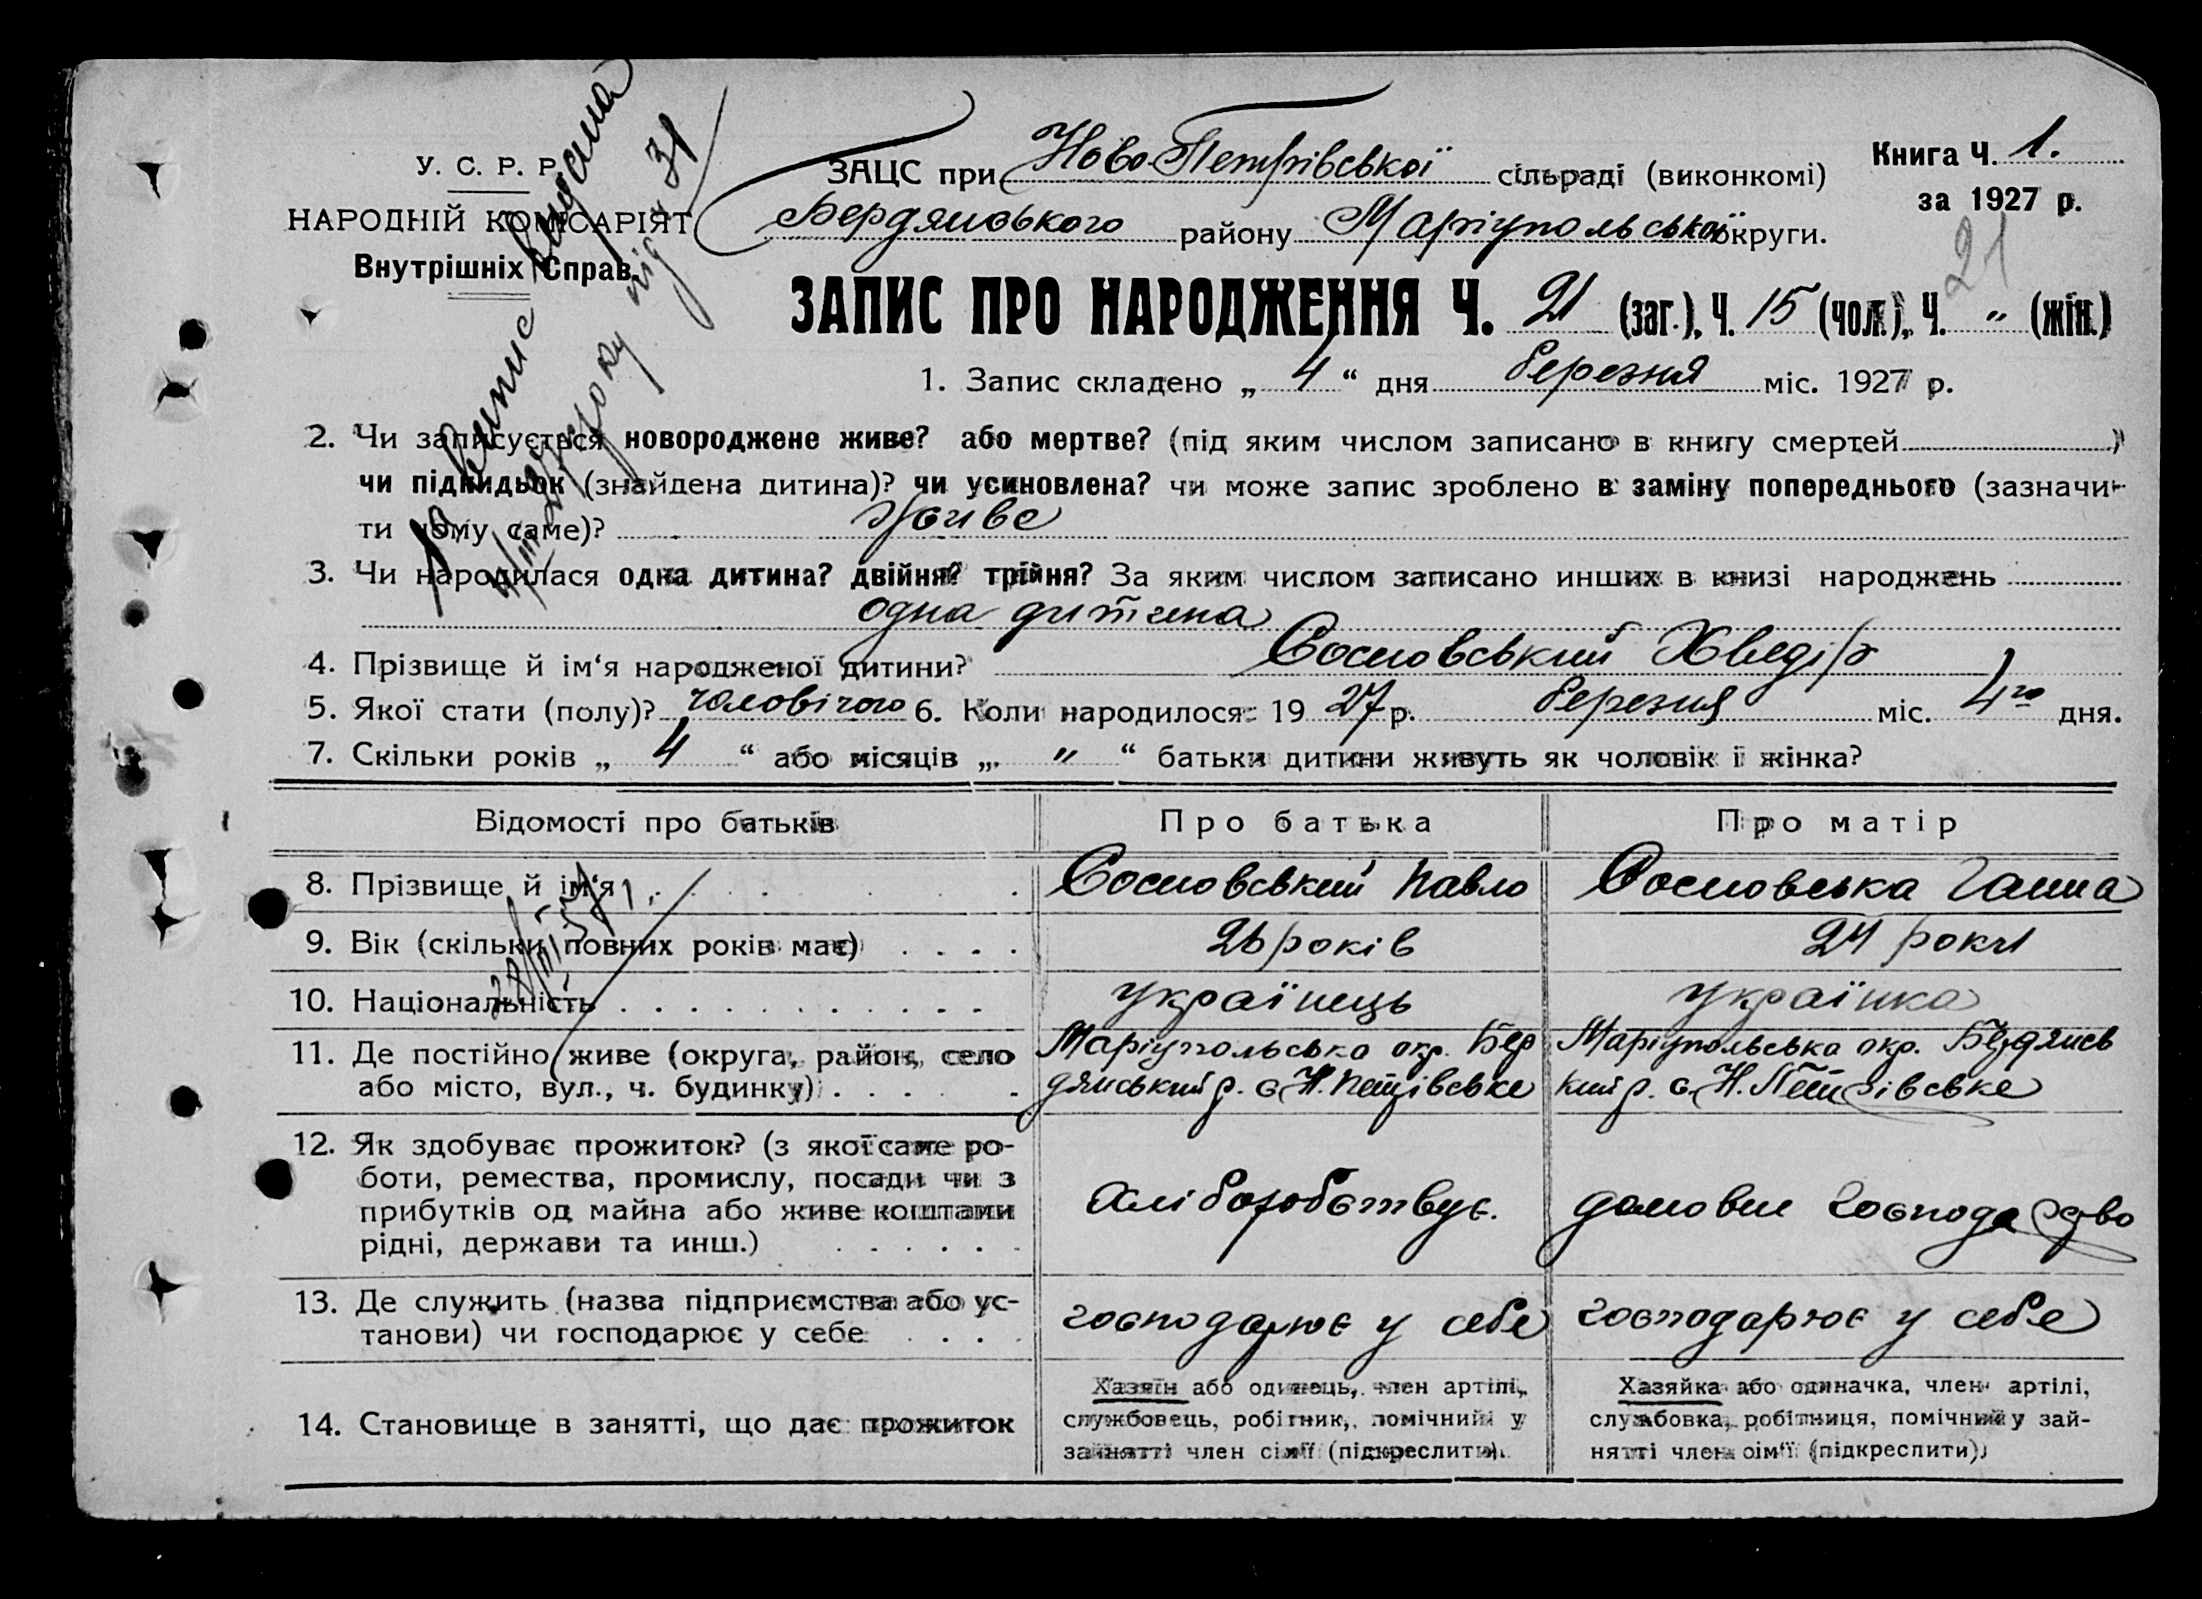 У. С. Р. Р.
НАРОДНІЙ КОМІСАРІЯТ
Внутрішніх Справ.
ЗАЦС при Ново-Петрівської сільраді (виконкомі)
Бердянського району Маріупольської округи.
Книга Ч. 1.
за 1927 р.
21
Випис видана
під Ч 31
ЗАПИС ПРО НАРОДЖЕННЯ Ч. 21 (заг.), Ч. 15 (чол.), Ч. " (жін.)
1. Запис складено „ 4 “ дня березня міс. 1927 р.
2. Чи записується новороджене живе? або мертве? (під яким числом записано в книгу смертей )
чи підкидьок (знайдена дитина)? чи усиновлена? чи може запис зроблено в заміну попереднього (зазначи-
ти чому саме)? живе
3. Чи народилася одна дитина? двійня? трійня? За яким числом записано инших в книзі народжень
одна дитина
4. Прізвище й ім‘я народженої дитини? Сосновський Хведір
5. Якої стати (полу)? чоловічого 6. Коли народилося: 1927 р. березня міс. 4го дня.
7. Скільки років „ 4 “ або місяців „ " “ батьки дитини живуть як чоловік і жінка?
Відомості про батьків Про батька Про матір
8. Прізвище й ім‘я Сосновський Павло Сосновська Ганна
9. Вік (скільки повних років має) 26 років 24 роки
10. Національність українець українка
11. Де постійно живе (округа, район, село Маріупольська окр. Бер Маріупольська окр. Бердянсь
або місто, вул., ч. будинку) дянський р. с. Н. Петрівське кий р. с. Н. Петрівське
12. Як здобуває прожиток? (з якої саме ро-
боти, ремества, промислу, посади чи з
прибутків од майна або живе коштами
рідні, держави та инш.) хліборобствує. домовне господарство
13. Де служить (назва підприємства або ус-
танови) чи господарює у себе господарює у себе господарює у себе
14. Становище в занятті, що дає прожиток
Хазяїн або одинець, член артілі,
службовець, робітник, помічний у
занятті член сім‘ї (підкреслити).
Хазяйка або одиначка, член артілі,
службовка, робітниця, помічний у зай-
нятті член сім‘ї (підкреслити)